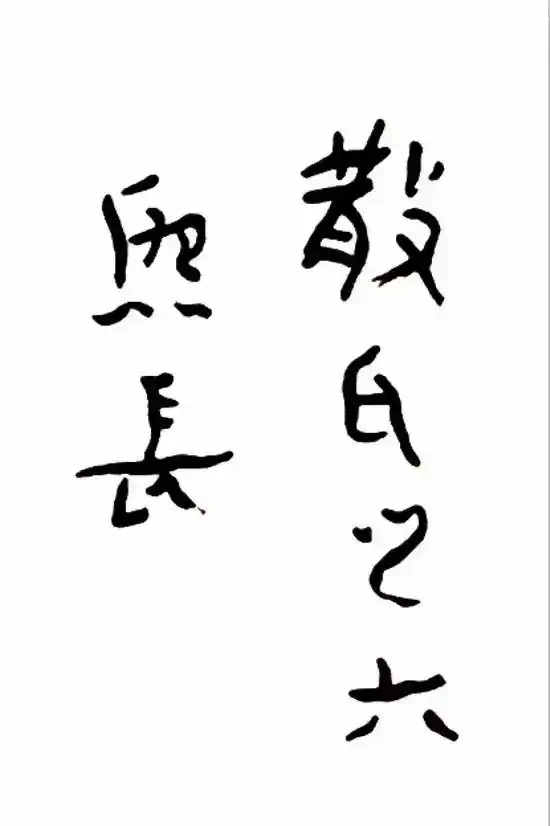 散氏之六
熙長